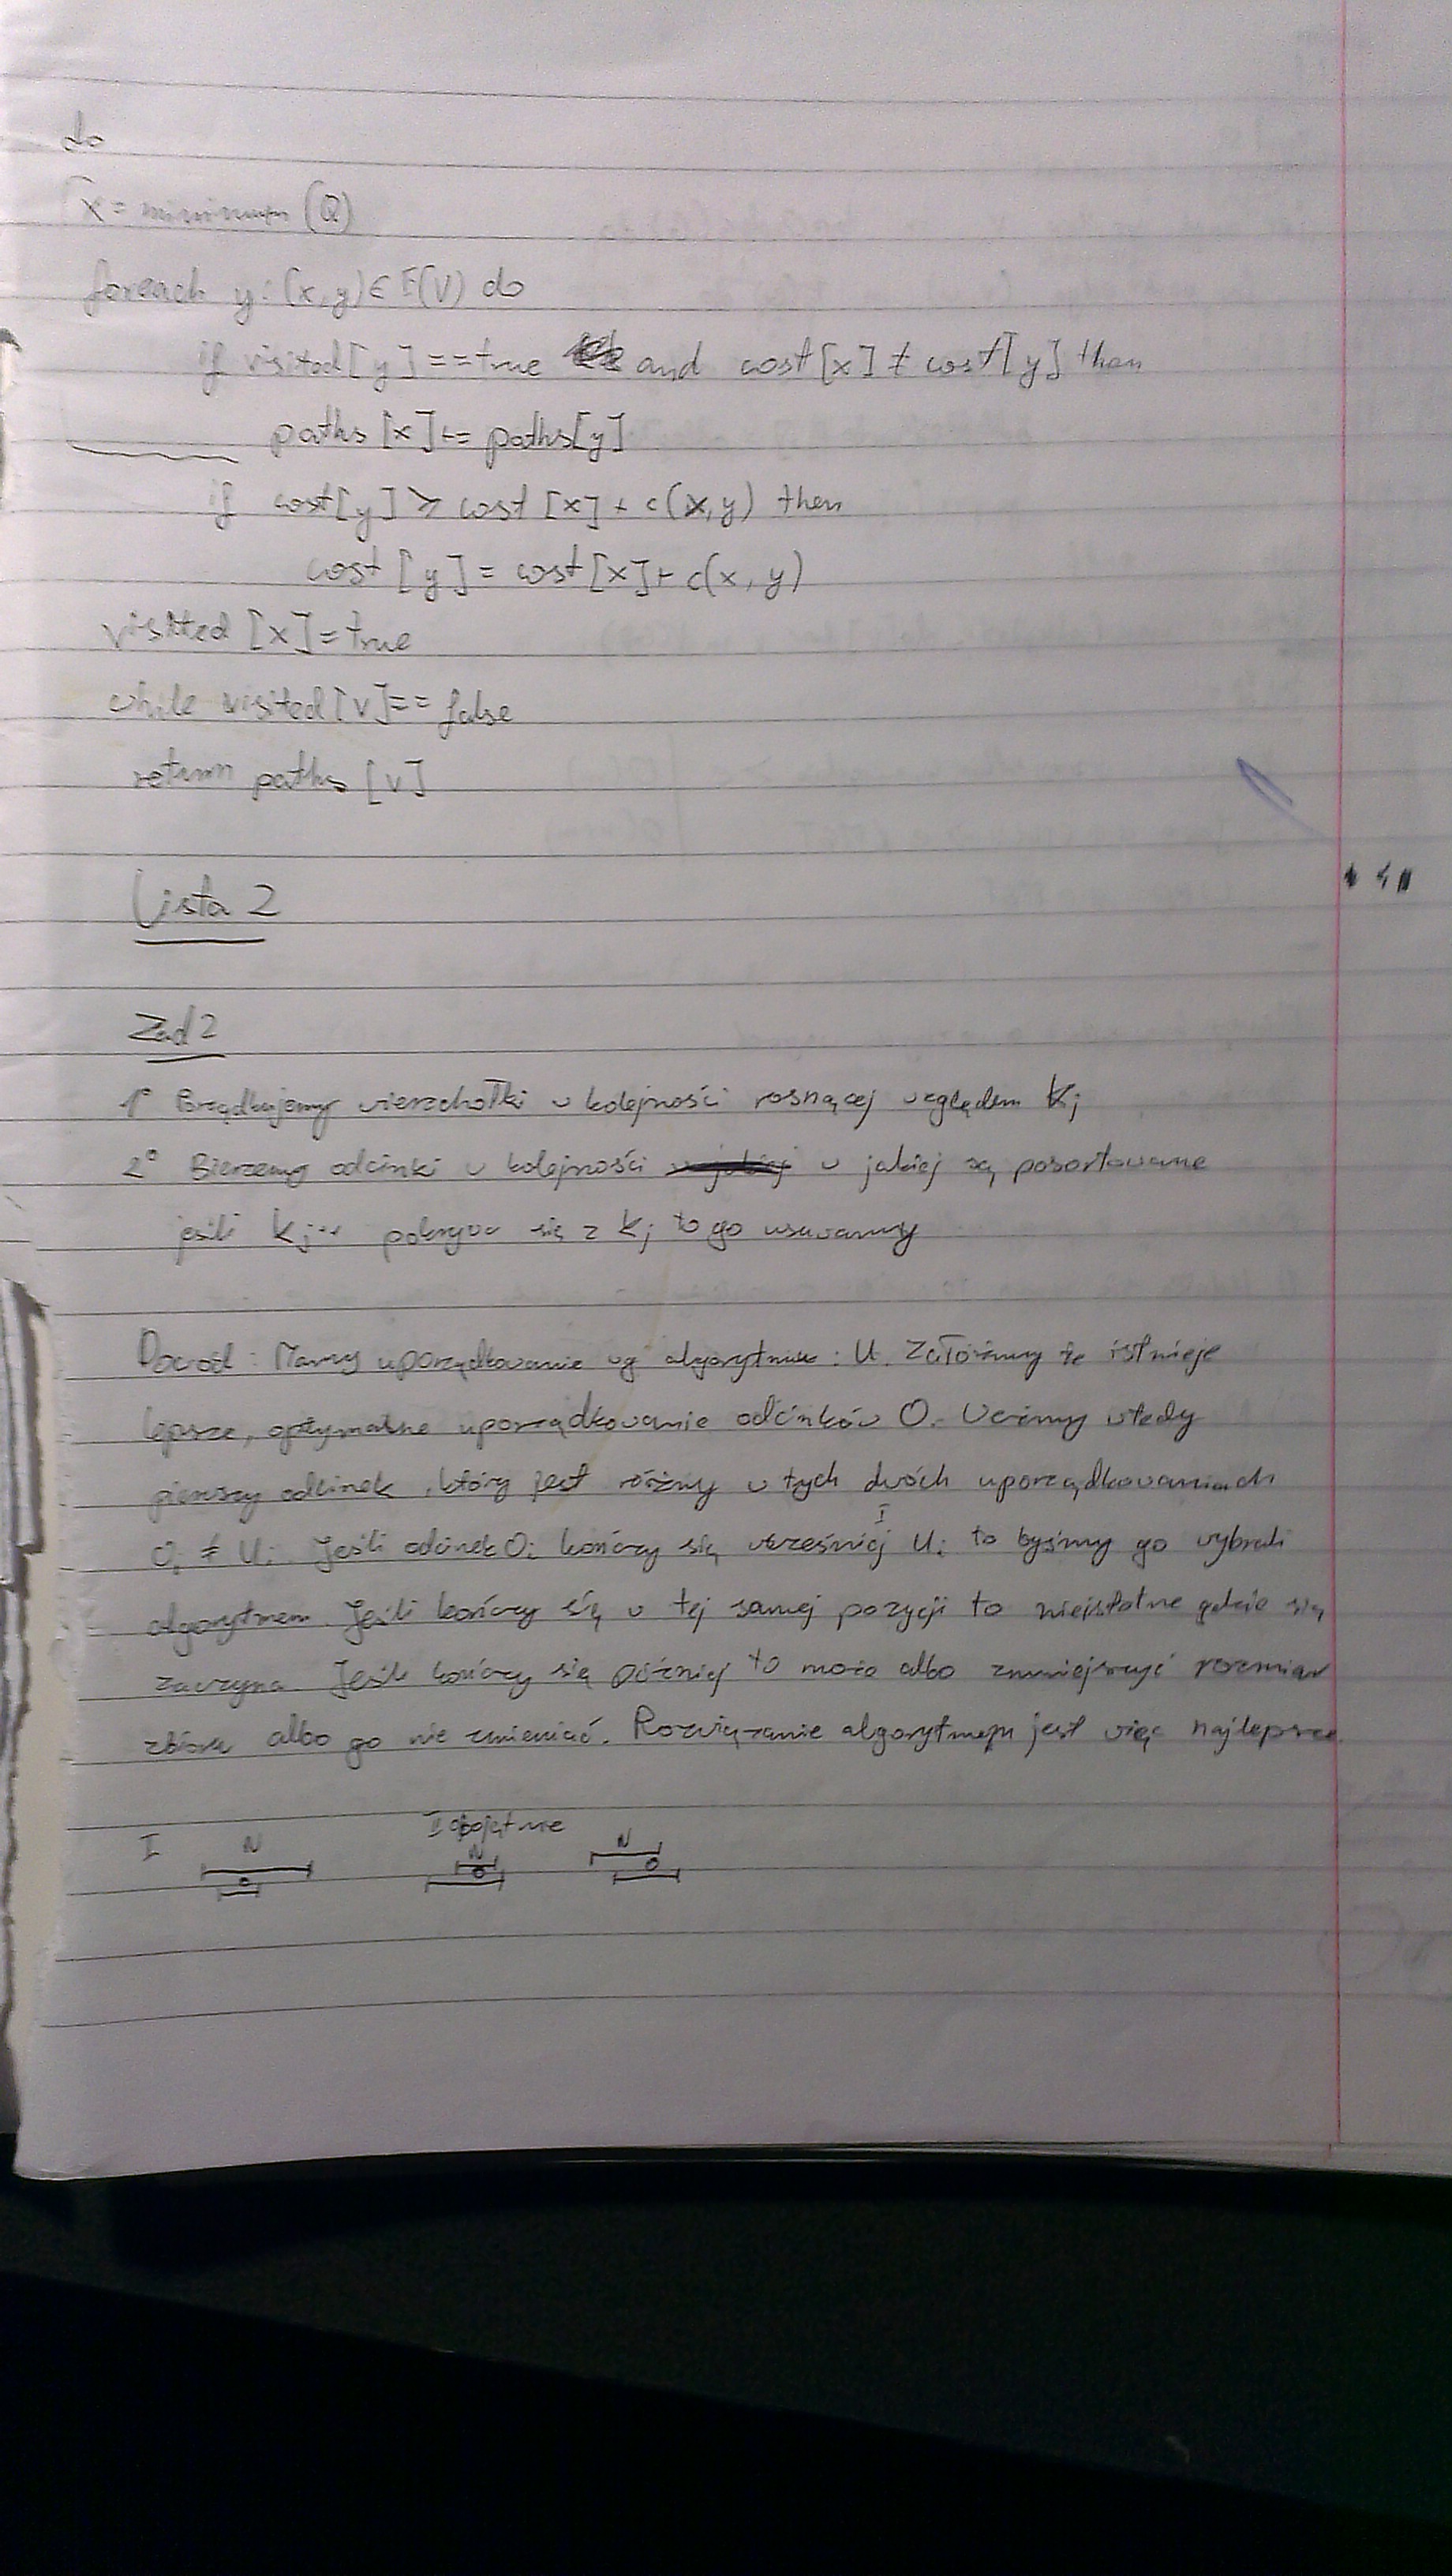 do
x = minimum (Q)
foreach y: (x,y) ∈ E(V) do
if visited[y] == true and cost[x] ≠ cost[y] then
paths [x] += paths[y]
if cost[y] ≥ cost [x] + c(x,y) then
cost [y] = cost[x] + c(x, y)
visited [x] = true
while visited[v] == false
return paths [v]
Lista 2
Zad 2
1° wierzchołki w kolejności rosnącej względem Kj
2° Bierzemy odcinki w kolejności w jakiej są posortowane
jeśli Kj pokrywa się z Kj to go usuwamy
Dowód: Mamy uporządkowanie wg algorytmu: U. Załóżmy że istnieje
lepsze, optymalne uporządkowanie odcinków O. Weźmy wtedy
pierwszy odcinek, który jest różny w tych dwóch uporządkowaniach
Oi ≠ Ui. Jeśli odcinek Oi kończy się wcześniej I Ui to byśmy go wybrali
algorytmem. Jeśli kończy się w tej samej pozycji to nieistotne gdzie się
zaczyna. Jeśli kończy się później to może albo zmniejszyć rozmiar
zbioru albo go nie zmieniać. Rozwiązanie algorytmem jest więc najlepsze
I N O
obojętnie N O N O